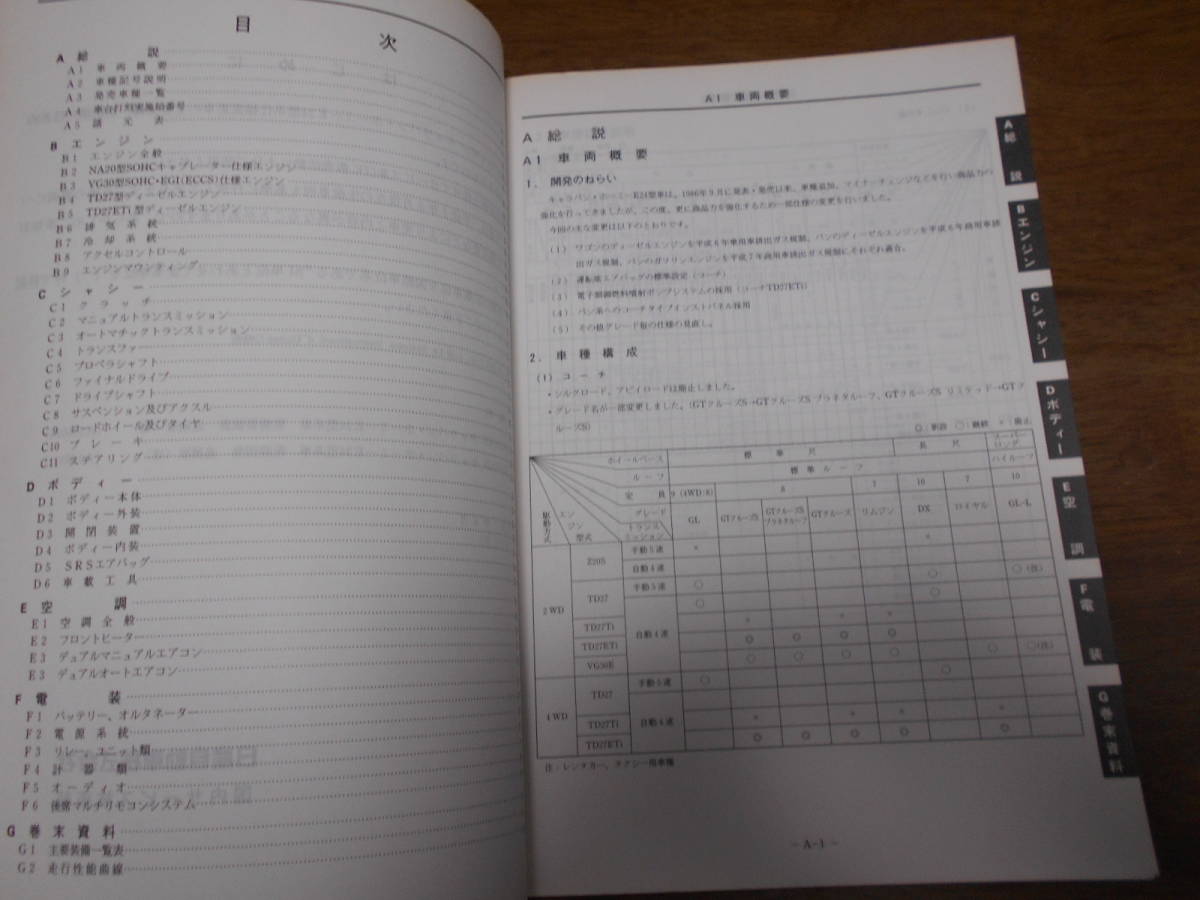 目 次
A 総 説
A1 車両概要
A2 車種記号説明
A3 発売車種一覧
A4 車台打刻実施始番号
A5 諸元表
B エンジン
B1 エンジン全般
B2 NA20型SOHCキャブレーター仕様エンジン
B3 VG30型SOHC・EGI(ECCS)仕様エンジン
B4 TD27型ディーゼルエンジン
B5 TD27ETi型ディーゼルエンジン
B6 排気系統
B7 冷却系統
B8 アクセルコントロール
B9 エンジンマウンティング
C シャシー
C1 クラッチ
C2 マニュアルトランスミッション
C3 オートマチックトランスミッション
C4 トランスファー
C5 プロペラシャフト
C6 ファイナルドライブ
C7 ドライブシャフト
C8 サスペンション及びアクスル
C9 ロードホイール及びタイヤ
C10 ブレーキ
C11 ステアリング
D ボディー
D1 ボディー本体
D2 ボディー外装
D3 開閉装置
D4 ボディー内装
D5 SRSエアバッグ
D6 車載工具
E 空 調
E1 空調全般
E2 フロントヒーター
E3 デュアルマニュアルエアコン
E3 デュアルオートエアコン
F 電 装
F1 バッテリー、オルタネーター
F2 電源系統
F3 リレー、ユニット類
F4 計器類
F5 オーディオ
F6 後席マルチリモコンシステム
G 巻末資料
G1 主要装備一覧表
G2 走行性能曲線
A1 車両概要
A 総 説
A1 車両概要
1. 開発のねらい
キャラバン・ホーミーE24型車は、1986年9月に発表・発売以来、車種追加、マイナーチェンジなどを行い商品力の
強化を行ってきましたが、この度、更に商品力を強化するため一部仕様の変更を行いました。
今回の主な変更は以下のとおりです。
(1) ワゴンのディーゼルエンジンを平成6年乗用車排出ガス規制、バンのディーゼルエンジンを平成6年商用車排
出ガス規制、バンのガソリンエンジンを平成7年商用車排出ガス規制にそれぞれ適合。
(2) 運転席エアバッグの標準設定(コーチ)
(3) 電子制御燃料噴射ポンプシステムの採用(コーチTD27ETi)
(4) バン系へのコーチタイプインストパネル採用
(5) その他グレード毎の仕様の見直し。
2. 車種構成
(1) コーチ
・シルクロード、アビイロードは廃止しました。
・グレード名が一部変更しました。(GTクルーズS→GTクルーズS プラネタルーフ、GTクルーズS リミテッド→GTク
ルーズS)
◎:新設 ○:継続 ×:廃止
ホイールベース 標準尺 長尺 スーパーロング
ルーフ 標準ルーフ ハイルーフ
定員 9(4WD:8) 8 7 10 7 10
グレード GL GTクルーズS GTクルーズS プラネタルーフ GTクルーズ リムジン DX ロイヤル GL-L
駆動方式 エンジン型式 トランスミッション
2WD Z20S 手動5速 × ×
自動4速 ○ ○(注)
TD27 手動5速 ○ ○
自動4速 ○
TD27Ti × × ×
TD27ETi ◎ ◎ ◎ ◎
VG30E ◎ ◎ ◎ ◎ ○ ○(注)
4WD TD27 手動5速 ○ ◎
自動4速
TD27Ti × × × ×
TD27ETi ◎ ◎ ◎ ◎ ◎
注:レンタカー、タクシー用車種
－A-1－
A 総 説
B エンジン
C シャシー
D ボディー
E 空 調
F 電 装
G 巻末資料